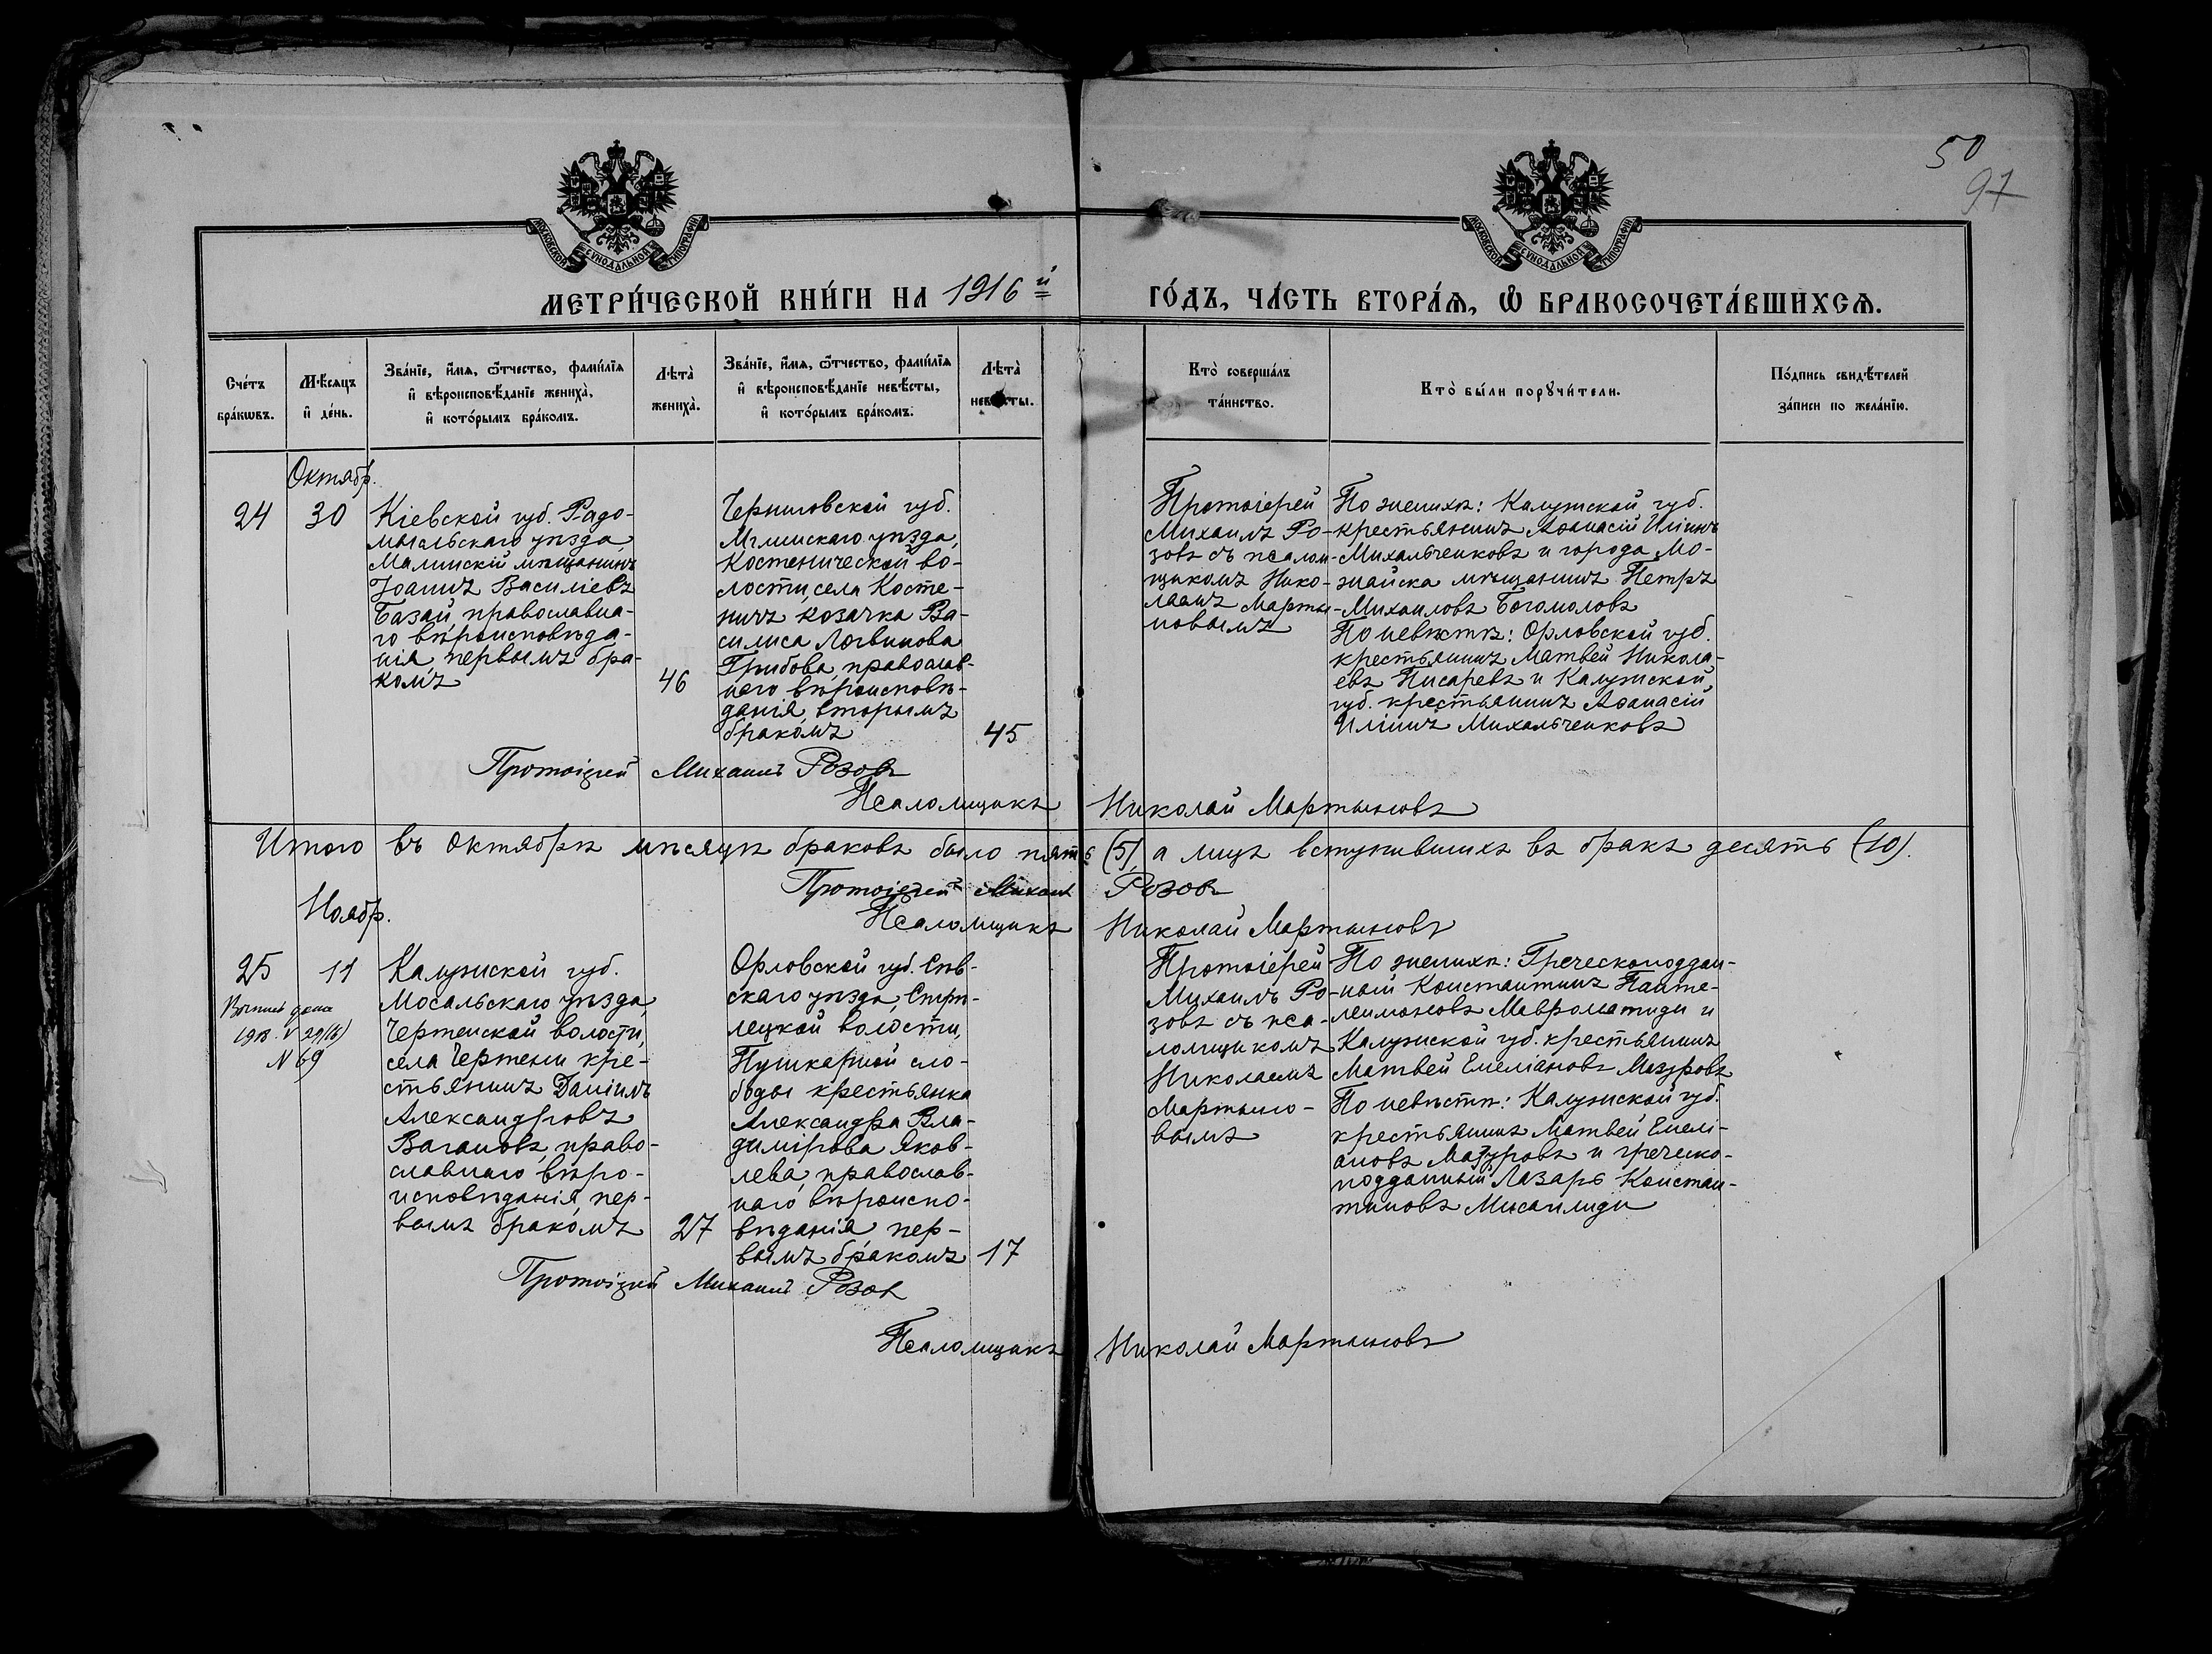 50
97
МОСКОВСКОЙ СѴНОДАЛЬНОЙ ТИПОГРАФІИ
МОСКОВСКОЙ СѴНОДАЛЬНОЙ ТИПОГРАФІИ
МЕТРИ́ЧЕСКОЙ КНИ́ГИ НА 1916 й
ГО́ДЪ, ЧА́СТЬ ВТОРА́Ѧ, Ѽ БРАКОСОЧЕТА́ВШИХСѦ.
Сче́тъ
бра́кѡвъ.
М҃ѣсяцъ
и҆ де́нь.
Зва́нїе, и҆́мя, ѻ҆́тчество, фами́лїя
и҆ вѣроисповѣ́данїе жениха̀,
и҆ кото́рымъ бра́комъ.
Лѣта̀
жениха̀.
Зва́нїе, и҆́мя, ѻ҆́тчество, фами́лїя
и҆ вѣроисповѣ́данїе невѣ́сты,
и҆ кото́рымъ бра́комъ.
Лѣта̀
невѣ́сты.
Кто̀ соверша́лъ
та́инство.
Кто̀ бы́ли порꙋчи́тели.
По́дпись свидѣ́телей
за́писи по жела́нїю.
Октябр.
24
30
Кіевской губ. Радо-
мысльскаго уѣзда,
Малинскій мѣщанинъ
Іоаннъ Василіевъ
Базай, православна-
го вѣроисповѣда-
нія, первымъ бра-
комъ
46
Черниговской губ.
Мглинскаго уѣзда,
Костеничской во-
лости, села Косте-
ничъ козачка Ва-
силиса Логвинова
Грибова, православ-
наго вѣроисповѣ-
данія, вторымъ
бракомъ
45
Протоіерей
Михаилъ Ро-
зовъ съ псалом-
щикомъ Нико-
лаемъ Марты-
новымъ
По женихѣ: Калужской губ.
крестьянинъ Аѳанасій Иліинъ
Михальченковъ и города Мо-
жайска мѣщанинъ Петръ
Михаиловъ Богомоловъ
По невѣстѣ: Орловской губ.
крестьянинъ Матвей Никола-
евъ Писаревъ и Калужской
губ. крестьянинъ Аѳанасій
Иліинъ Михальченковъ
Протоіерей Михаилъ Розовъ
Псаломщикъ Николай Мартыновъ
Итого въ Октябрѣ мѣсяцѣ браковъ было пять (5), а лицъ вступившихъ въ бракъ десять (10).
Протоіерей Михаилъ Розовъ
Псаломщикъ Николай Мартыновъ
Ноябр.
25
11
1918. V 29/(16)
N 69
Калужской губ.
Мосальскаго уѣзда,
Чертенской волости,
села Чертени кре-
стьянинъ Даніилъ
Александровъ
Вагановъ, право-
славнаго вѣро-
исповѣданія, пер-
вымъ бракомъ
27
Орловской губ. Сѣв-
скаго уѣзда, Стрѣ-
лецкой волости,
Пушкарной сло-
боды крестьянка
Александра Вла-
димірова Яков-
лева, православ-
наго вѣроиспо-
вѣданія, пер-
вымъ бракомъ
17
Протоіерей
Михаилъ Ро-
зовъ съ пса-
ломщикомъ
Николаемъ
Мартыно-
вымъ
По женихѣ: Греческоподдан-
ный Константинъ Панте-
леимоновъ Мавроматиди и
Калужской губ. крестьянинъ
Матвей Емеліановъ Мазуровъ
По невѣстѣ: Калужской губ.
крестьянинъ Матвей Емелі-
ановъ Мазуровъ и греческо-
подданный Лазарь Констан-
тиновъ Мисаилиди
Протоіерей Михаилъ Розов
Псаломщикъ Николай Мартыновъ